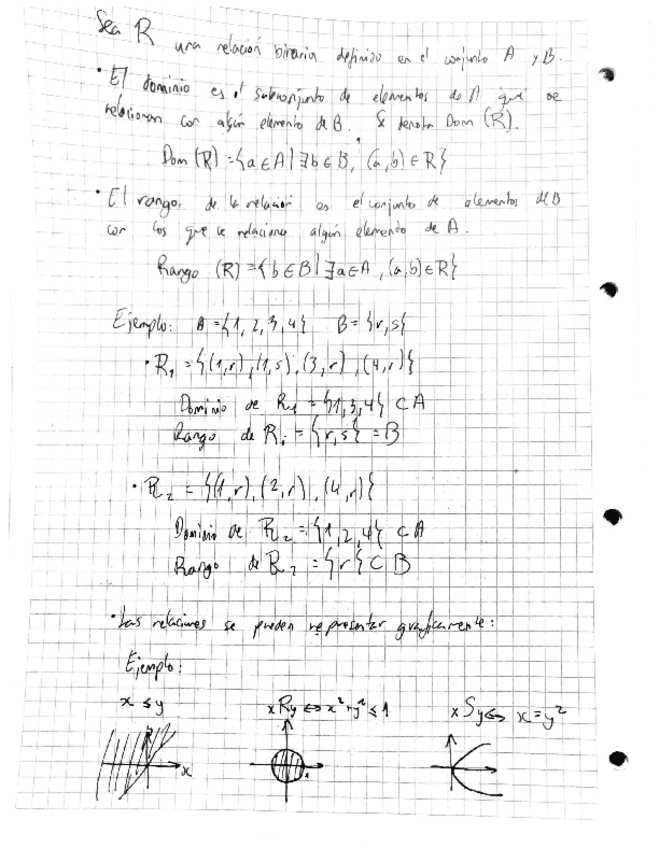 Sea R una relación binaria definida en el conjunto A y B.
· El dominio es el subconjunto de elementos de A que se
relacionan con algún elemento de B. Se denota Dom (R).
Dom (R) = {a ∈ A | ∃ b ∈ B, (a, b) ∈ R}
· El rango de la relación es el conjunto de elementos de B
con los que se relaciona algún elemento de A.
Rango (R) = { b ∈ B | ∃ a ∈ A, (a, b) ∈ R}
Ejemplo: A = {1, 2, 3, 4} B = {r, s}
· R₁ = {(1, r), (1, s), (3, r), (4, r)}
Dominio de R₁ = {1, 3, 4} ⊂ A
Rango de R₁ = {r, s} = B
· R₂ = {(1, r), (2, r), (4, r)}
Dominio de R₂ = {1, 2, 4} ⊂ A
Rango de R₂ = {r} ⊂ B
· Las relaciones se pueden representar graficamente:
Ejemplo:
x ≤ y xRy ⇔ x² + y² ≤ 1 xSy ⇔ x = y²
x 1